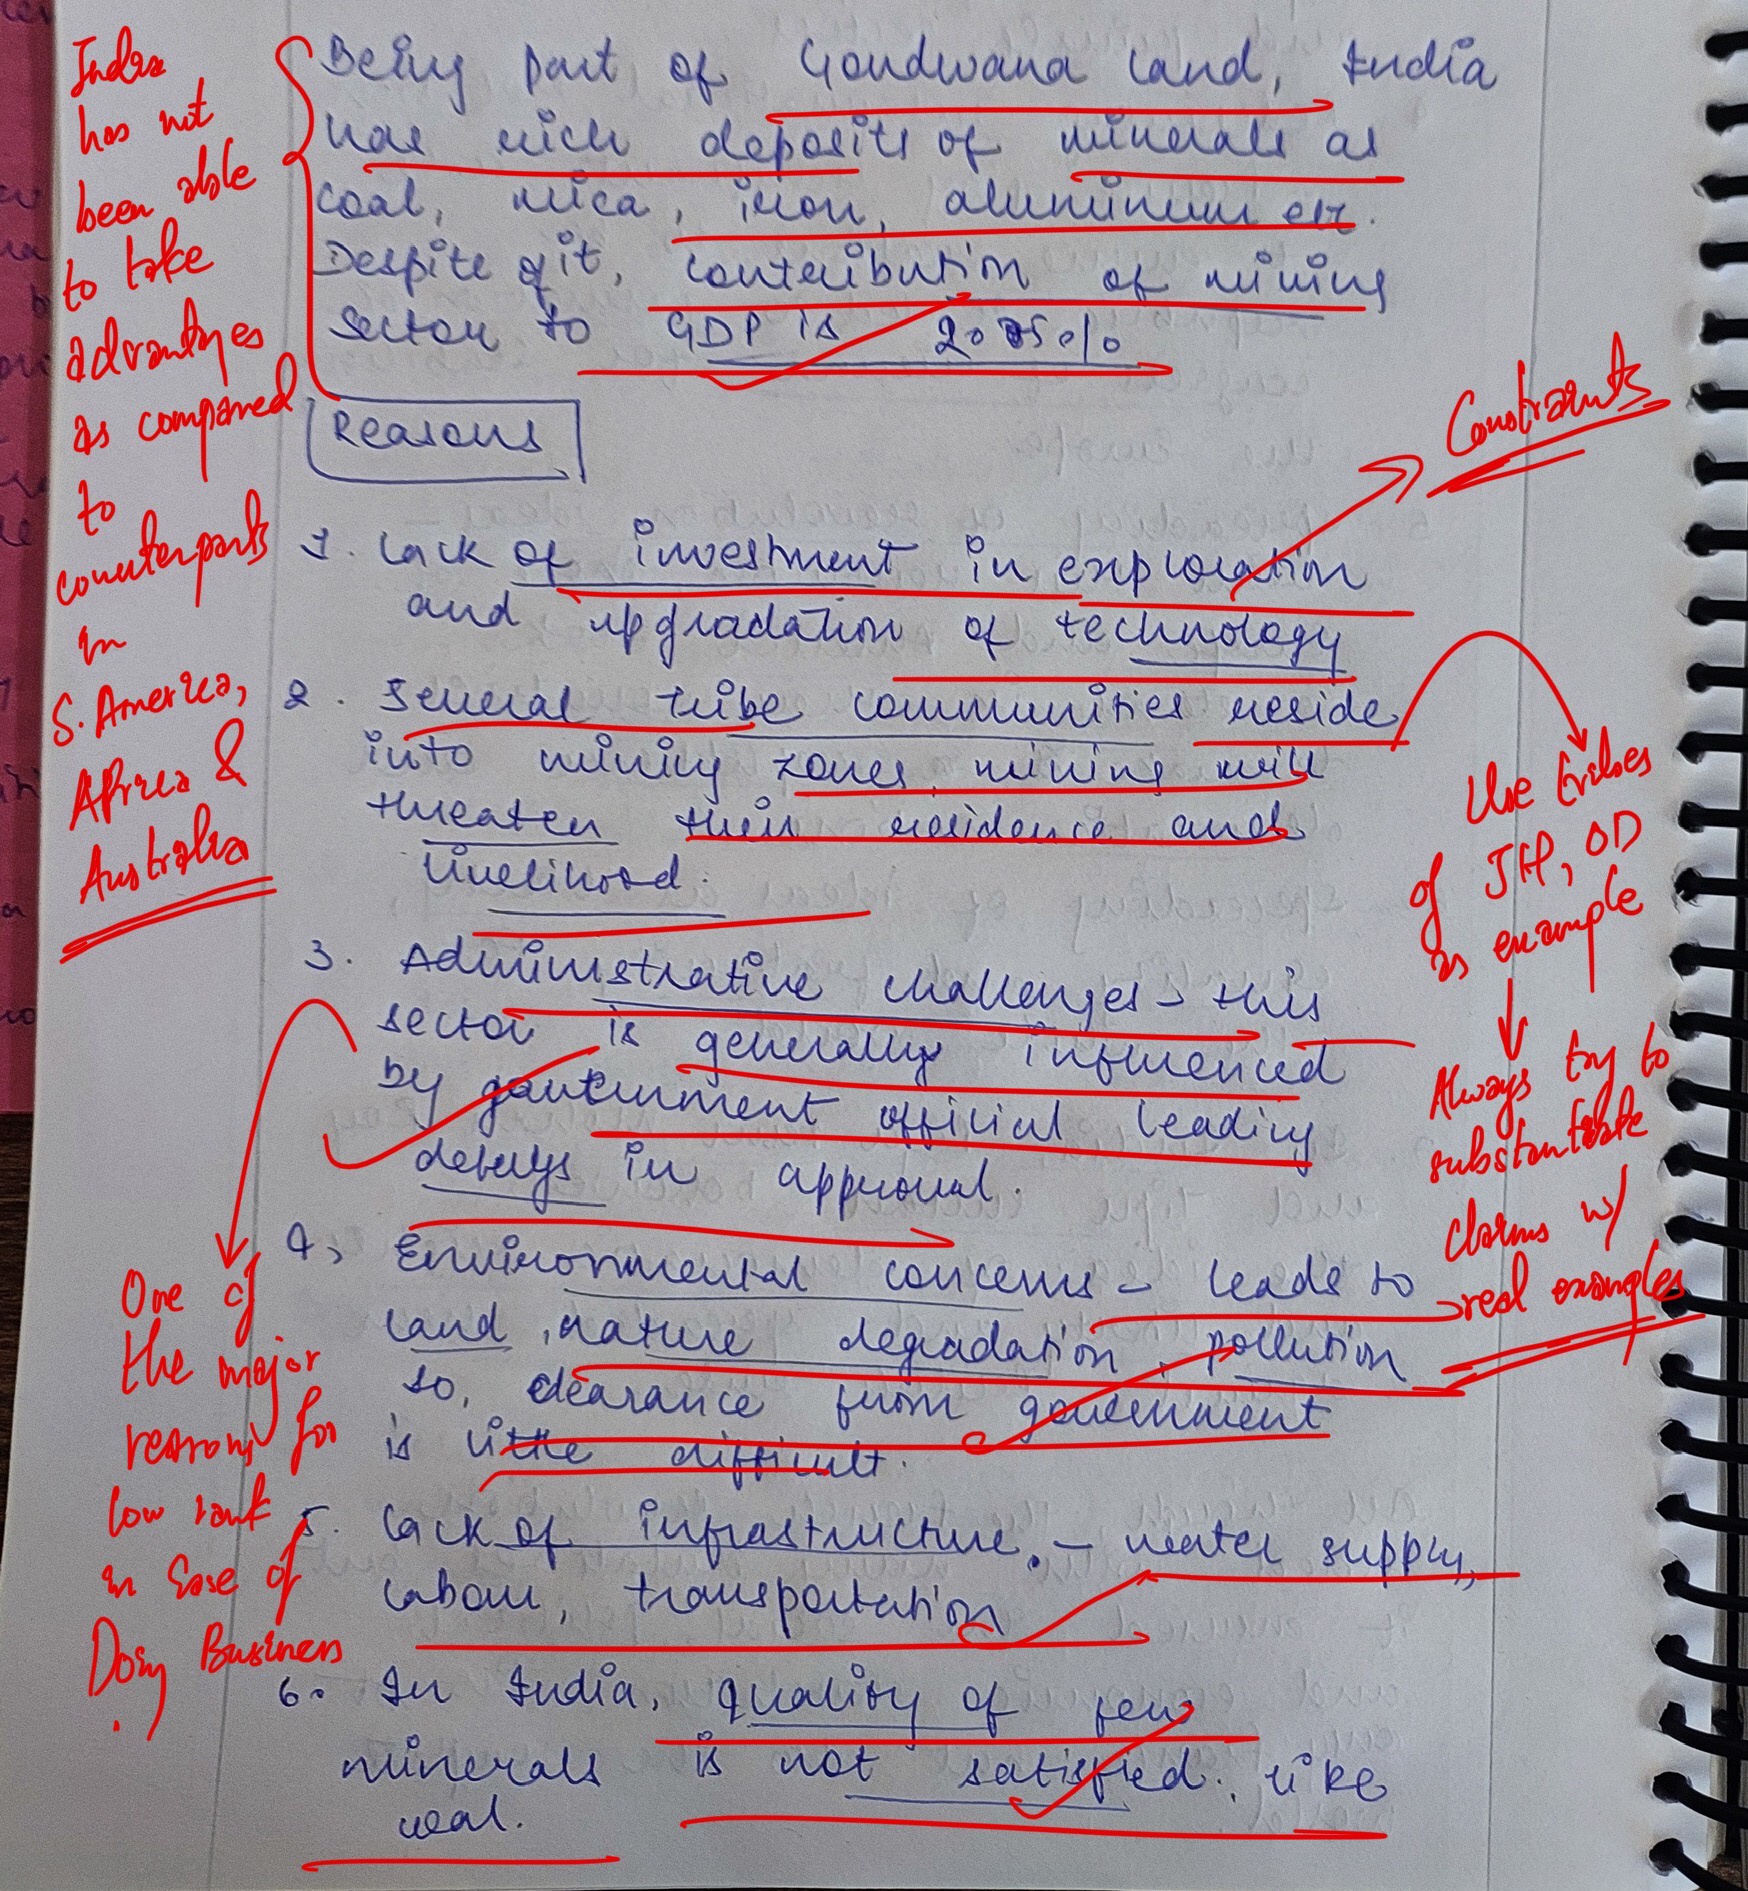 Being part of Gondwana land, India
has rich deposits of minerals as
coal, mica, iron, aluminium etc.
Despite of it, contribution of mining
sector to GDP is
Reasons
1. Lack of investment in exploration
and upgradation of technology
2. Several tribe communities reside
into mining zones, mining will
threaten their residence and
livelihood.
3. Administrative challenges - this
sector is generally influenced
by government official leading
delays in approval.
4, Environmental concerns - leads to
land, nature degradation, pollution
so, clearance from government
is little difficult.
5. Lack of infrastructure. - water supply,
labour, transportation
6. In India, quality of few
minerals is not satisfied. like
coal.
India
has not
been able
to take
advantages
as compared
to
counterparts
in
S. America,
Africa &
Australia
One of
the major
reasons for
low rank
in Ease of
Doing Business
Constraints
Use tribes
of JH, OD
as example
Always try to
substantiate
claims w/
real examples